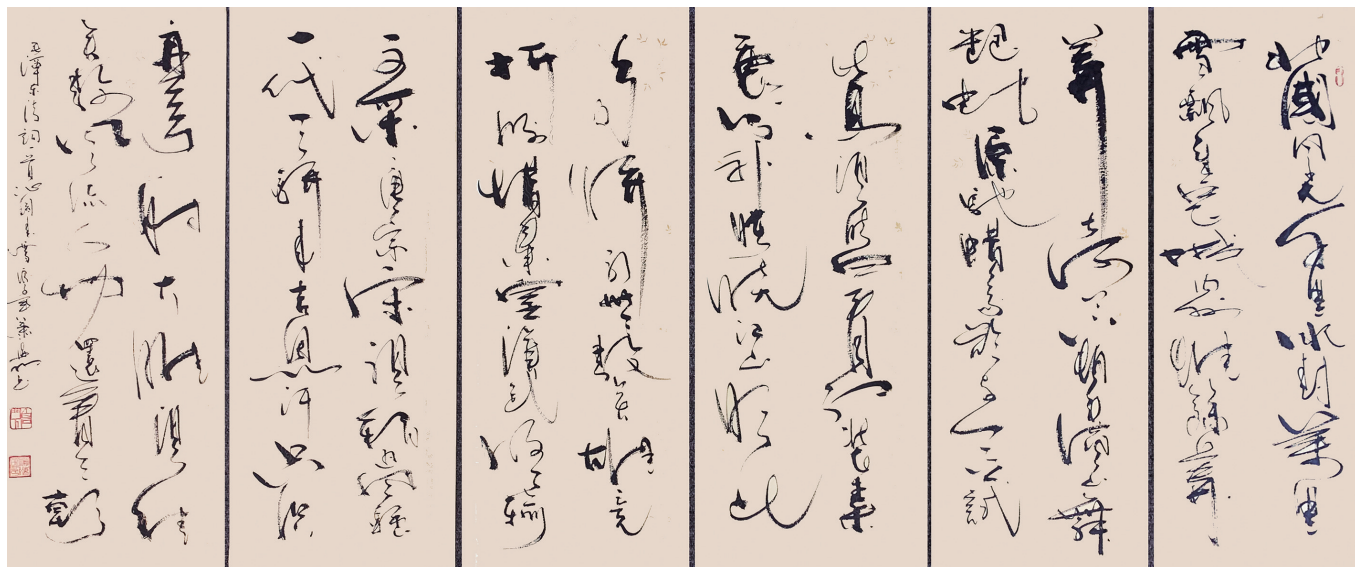 北國風光千里冰封萬里
雪飄望長城內外惟餘莽
莽大河上下頓失滔滔山舞
銀蛇原馳蠟象欲與天公試
比高須晴日看紅裝素
裹分外妖嬈江山如此
多嬌引無數英雄競
折腰惜秦皇漢武略輸
文采唐宗宋祖稍遜風騷
一代天驕成吉思汗只識
彎弓射大雕俱往
矣數風流人物還看今朝
毛澤東詩詞一首沁園春雪